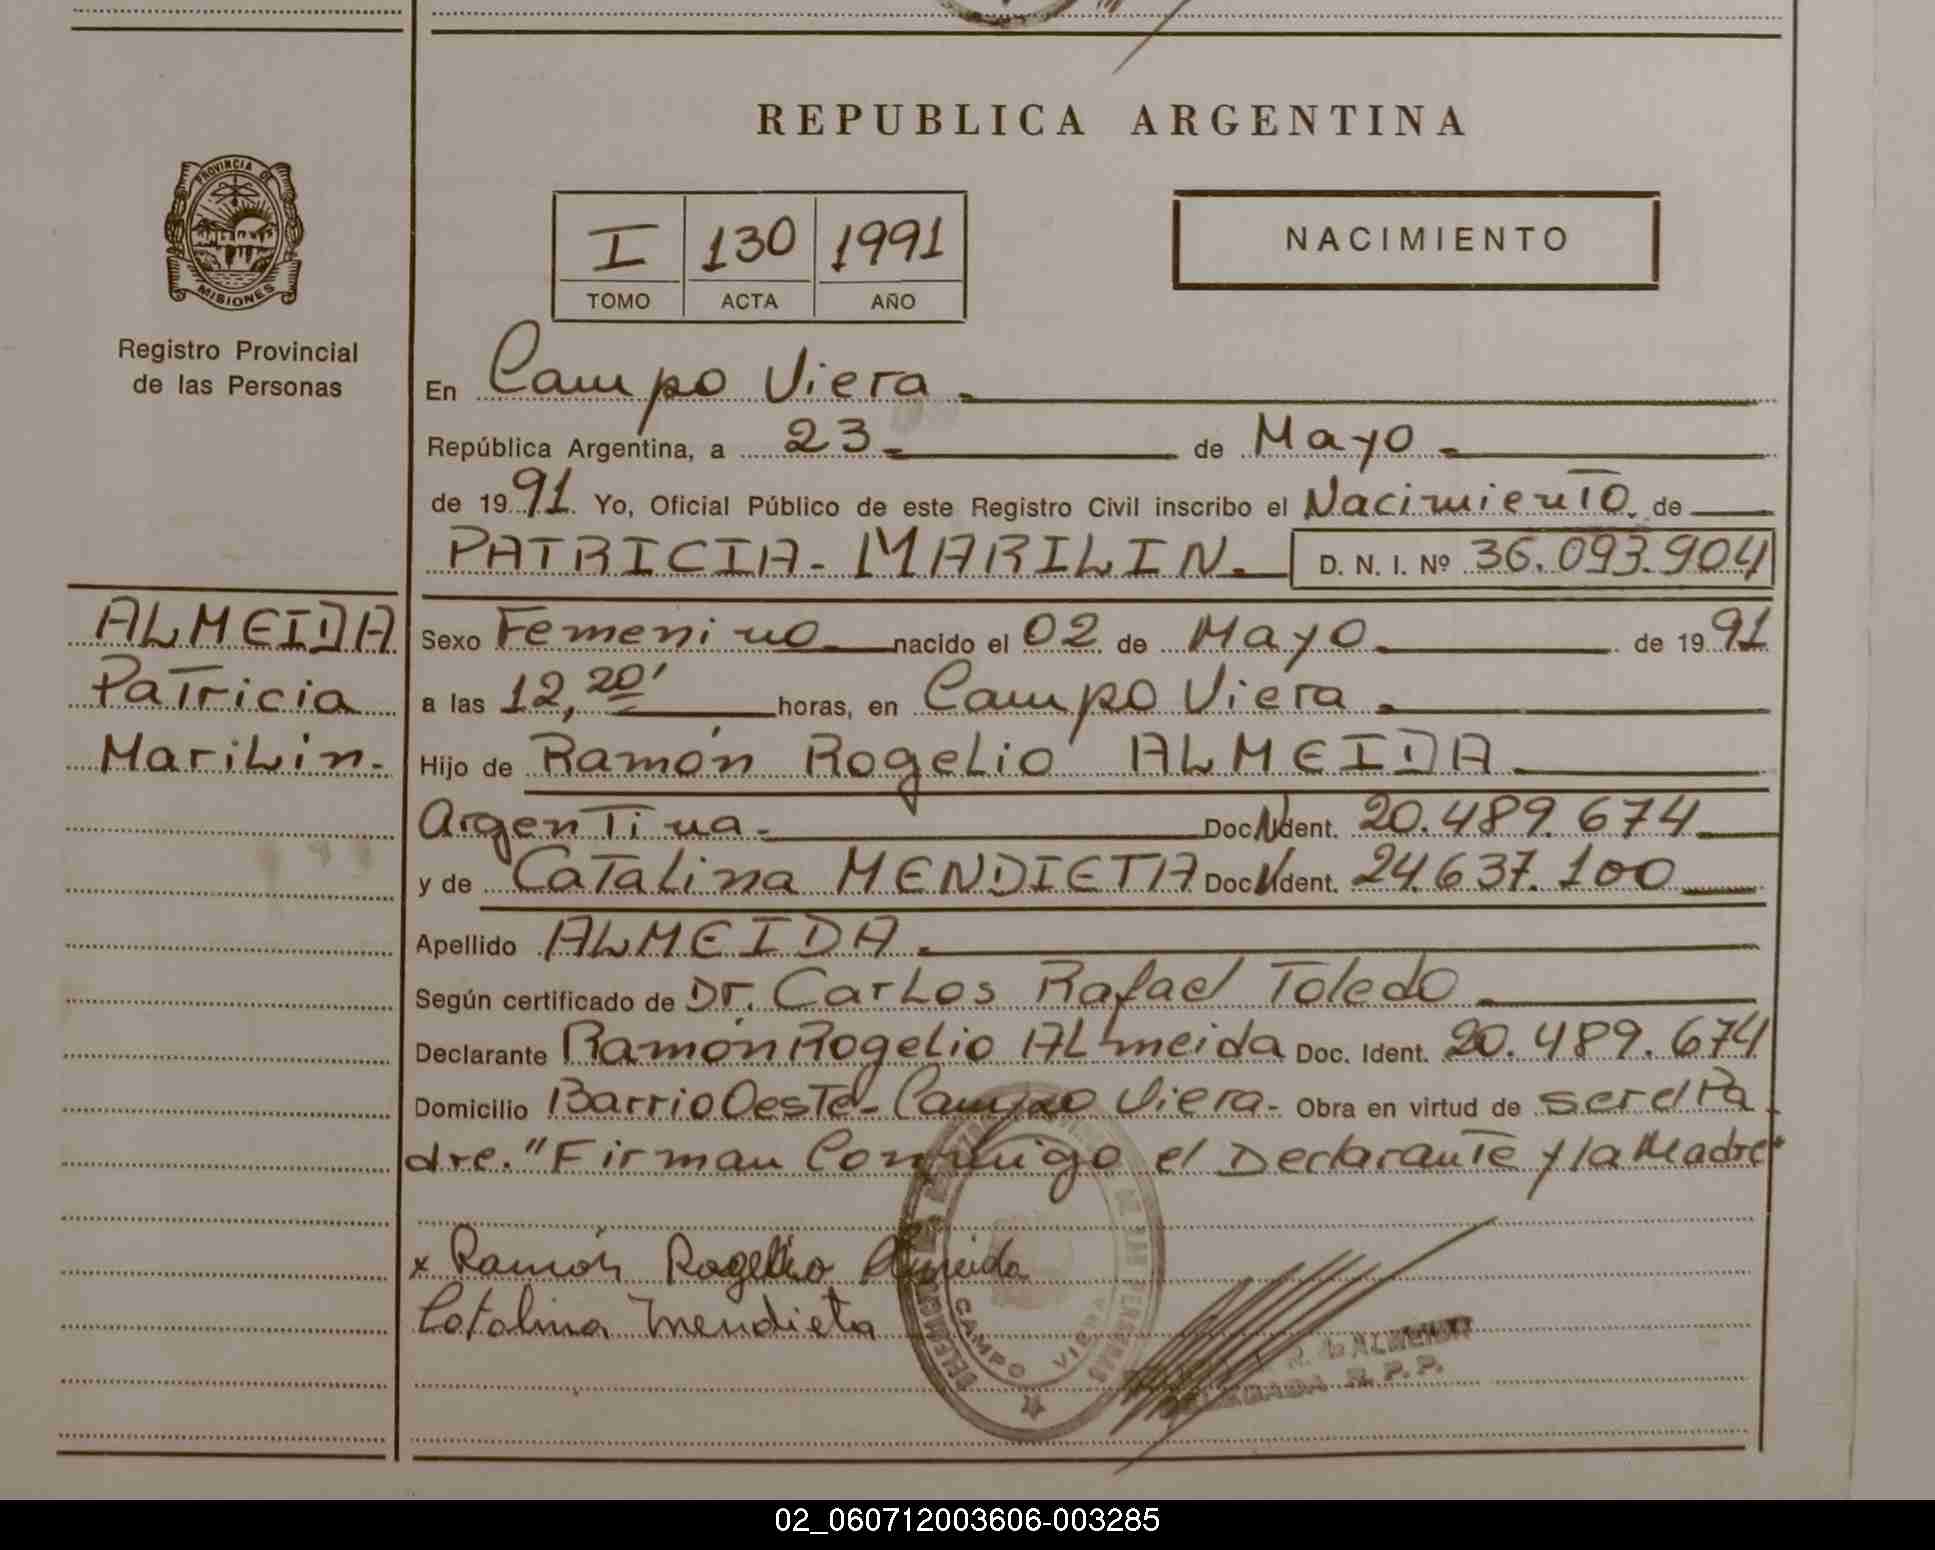 REPUBLICA ARGENTINA
PROVINCIA DE
MISIONES
Registro Provincial
de las Personas
I 130 1991
TOMO ACTA AÑO
NACIMIENTO
En Campo Viera
República Argentina, a 23 de Mayo
de 1991. Yo, Oficial Público de este Registro Civil inscribo el Nacimiento de
PATRICIA - MARILIN. D. N. I. Nº 36.093.904
ALMEIDA
Patricia
Marilin.-
Sexo Femenino nacido el 02 de Mayo de 1991
a las 12,20' horas, en Campo Viera
Hijo de Ramón Rogelio ALMEIDA
Argentina Doc. Ident. 20.489.674
y de Catalina MENDIETA Doc. Ident. 24.637.100
Apellido ALMEIDA.
Según certificado de Dr. Carlos Rafael Toledo
Declarante Ramón Rogelio ALmeida Doc. Ident. 20.489.674
Domicilio Barrio Oeste - Campo Viera - Obra en virtud de ser el Pa
dre. "Firman Conmigo el Declarante y la Madre"
x Ramón Rogelio Almeida
Catalina Mendieta
CAMPO VIERA
R. de ALMEIDA
R. P. P.
02_060712003606-003285